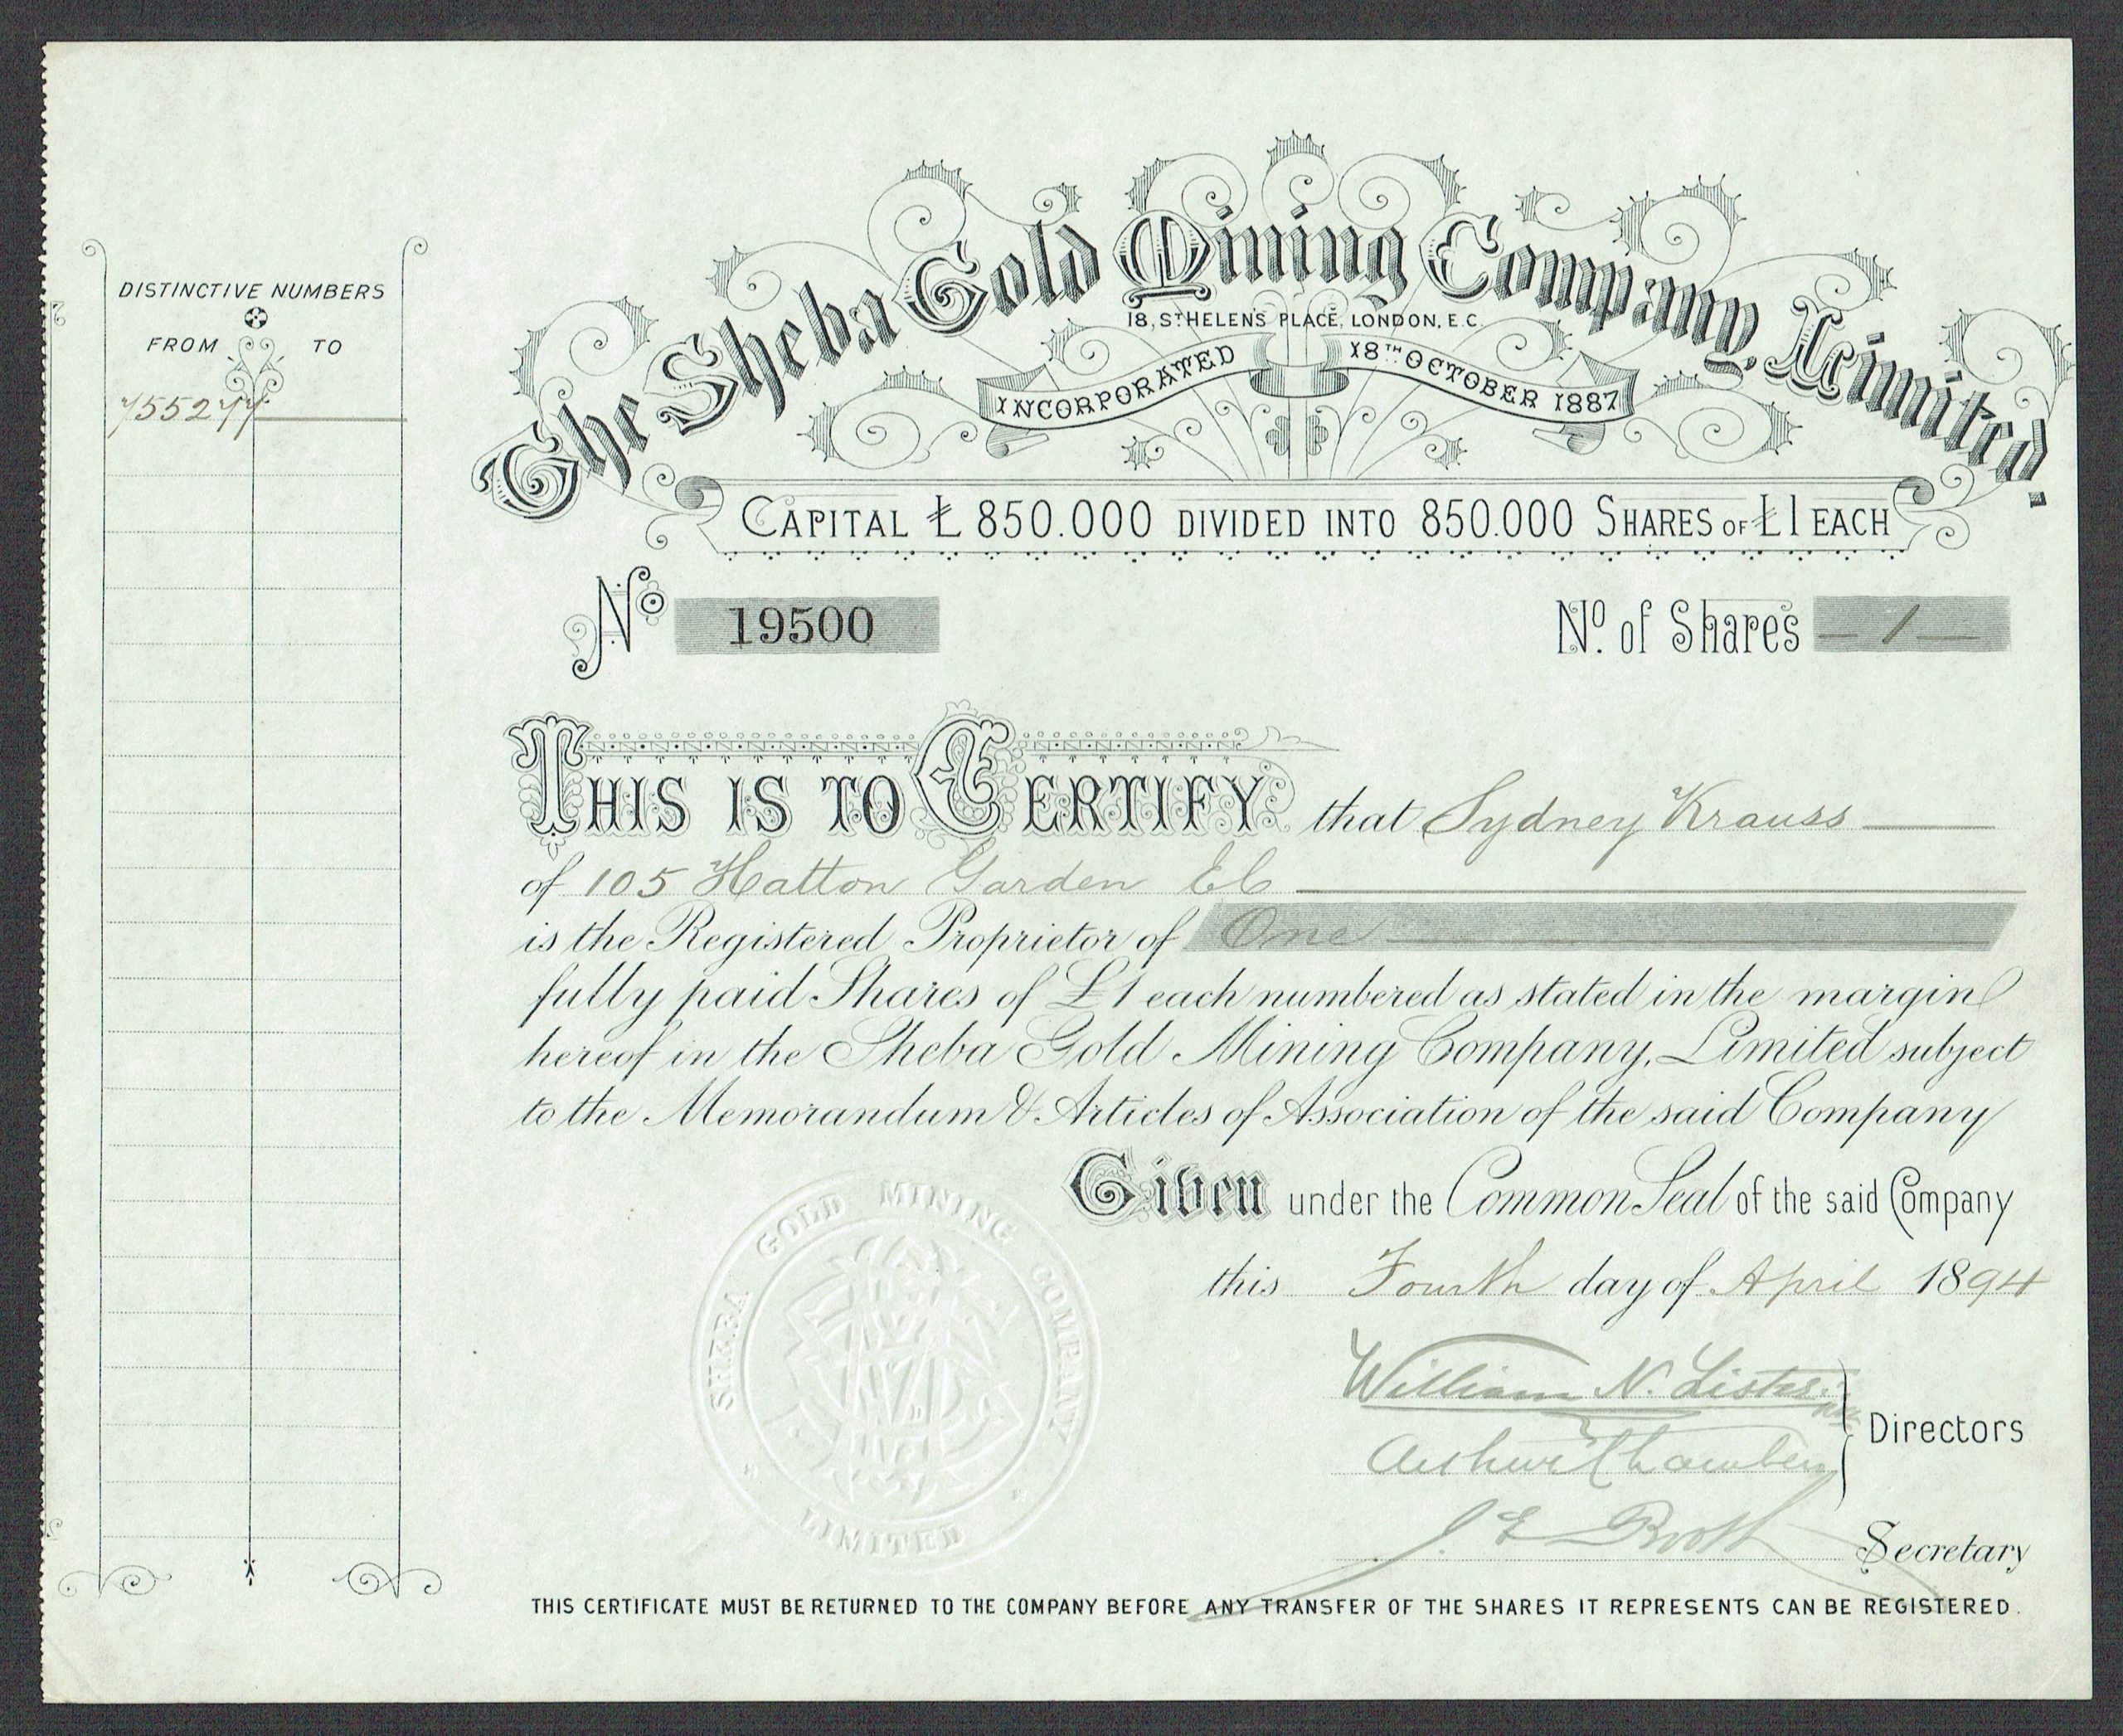 DISTINCTIVE NUMBERS
FROM TO
755277
The Sheba Gold Mining Company, Limited.
18, ST HELENS PLACE, LONDON, E.C.
INCORPORATED 18TH OCTOBER 1887
CAPITAL £850.000 DIVIDED INTO 850.000 SHARES OF £1 EACH
No 19500
No. of Shares — 1 —
THIS IS TO CERTIFY that Sydney Krauss
of 105 Hatton Garden EC
is the Registered Proprietor of One
fully paid Shares of £1 each numbered as stated in the margin
hereof in the Sheba Gold Mining Company, Limited subject
to the Memorandum & Articles of Association of the said Company
Given under the Common Seal of the said Company
this Fourth day of April 1894
SHEBA GOLD MINING COMPANY LIMITED
William N. Lister
Directors
Arthur Chambers
J. E. Booth
Secretary
THIS CERTIFICATE MUST BE RETURNED TO THE COMPANY BEFORE ANY TRANSFER OF THE SHARES IT REPRESENTS CAN BE REGISTERED.